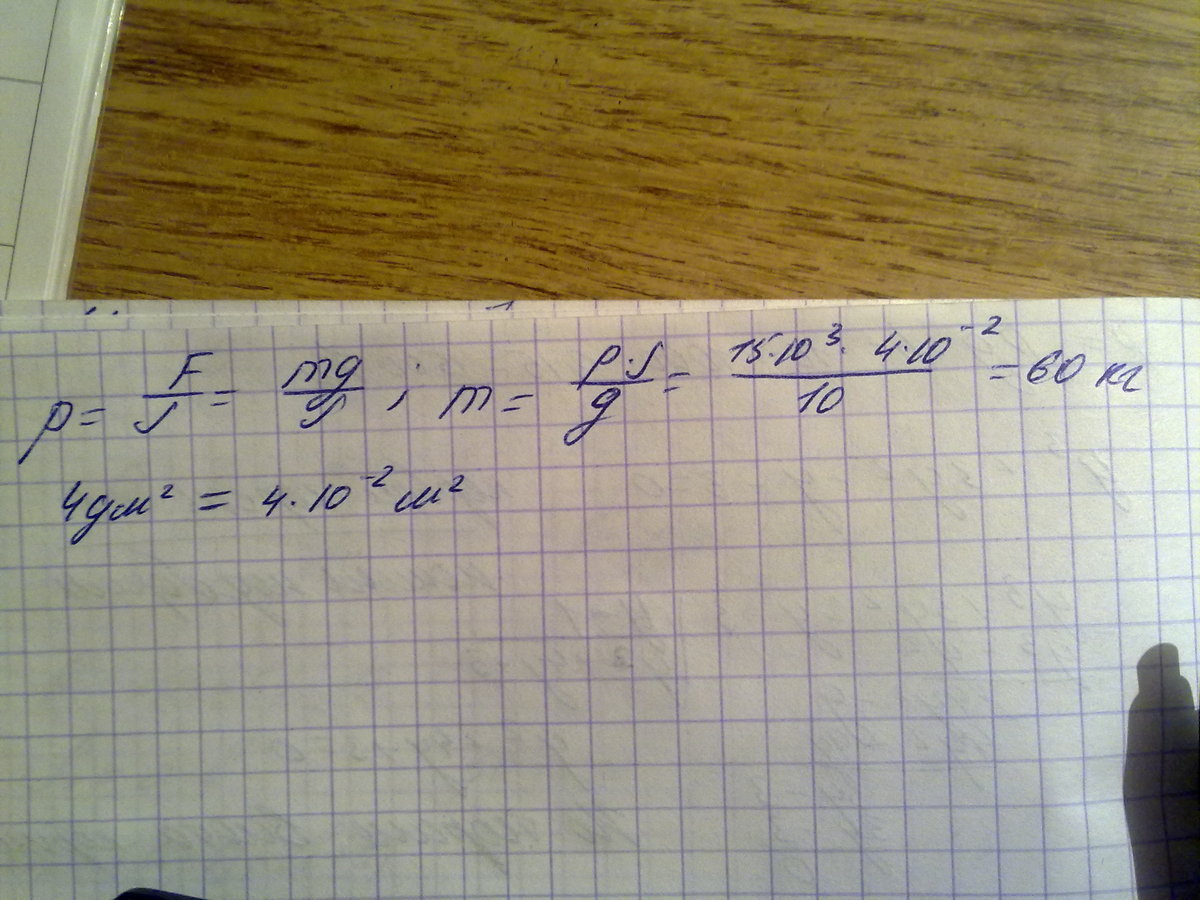 p = F/S = mg/S ; m = p·S/g = 15·10³ · 4·10⁻²/10 = 60 кг
4дм² = 4·10⁻² м²